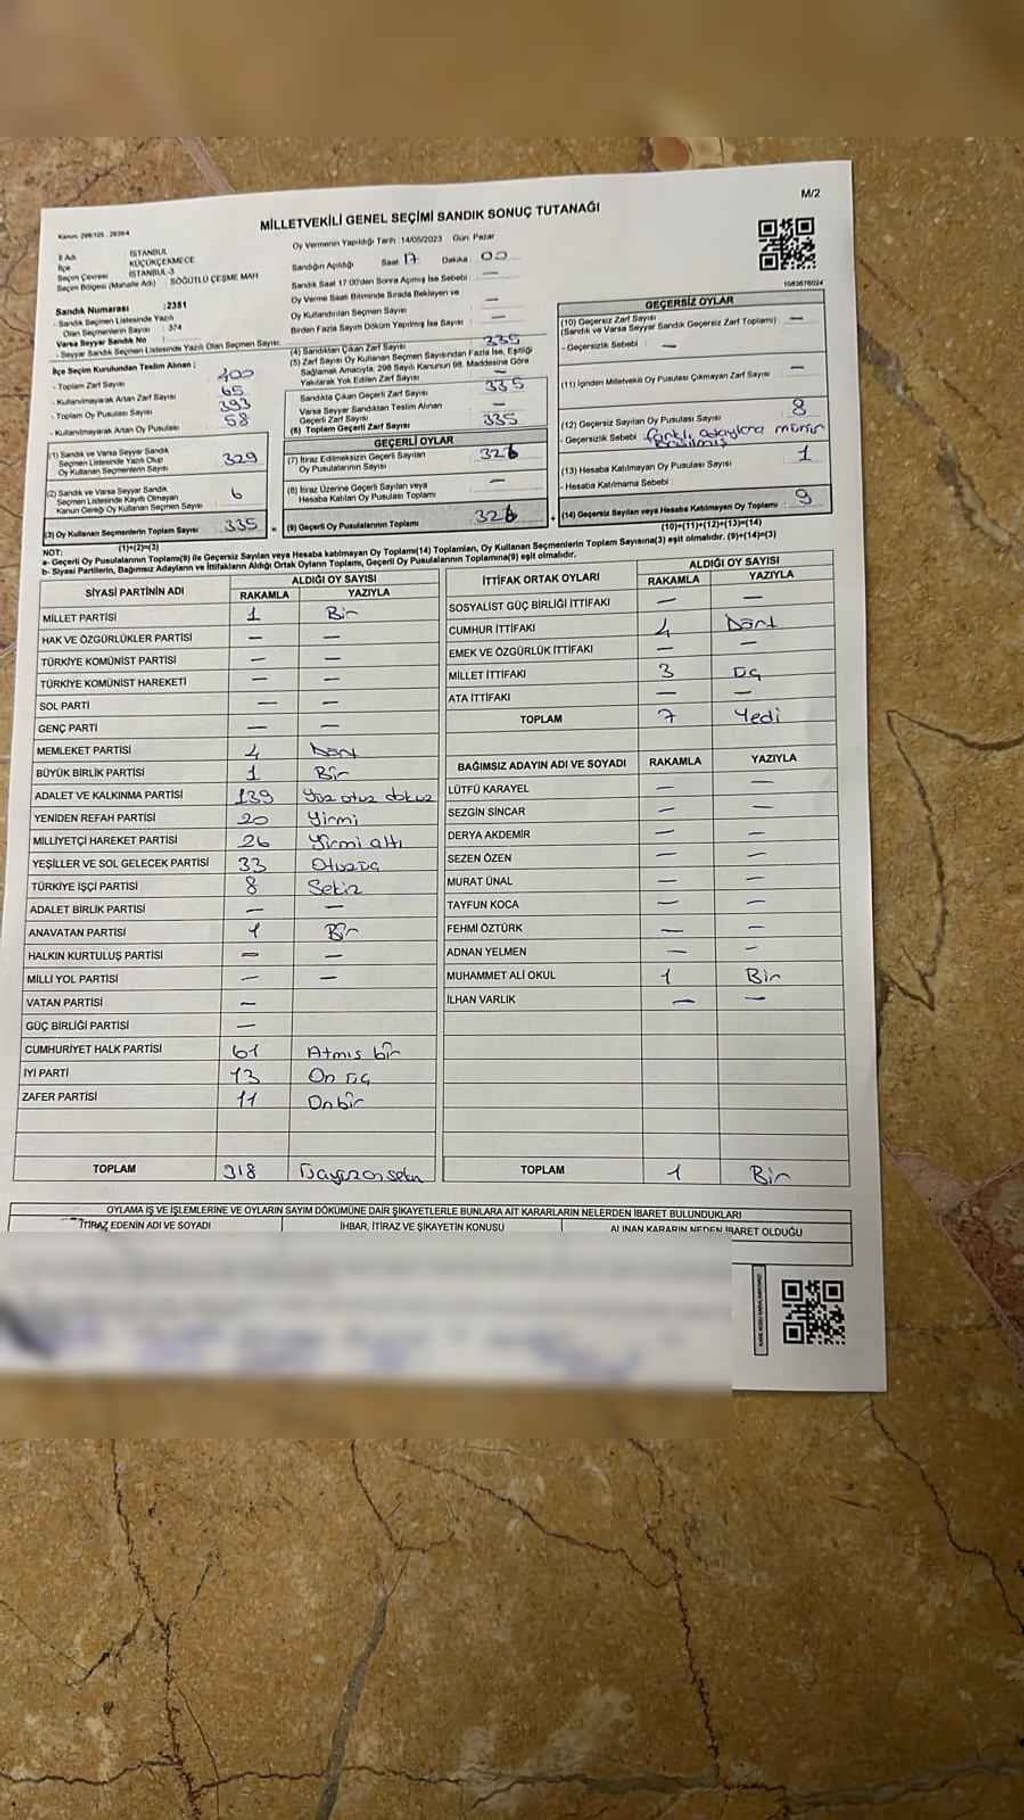 M/2
MİLLETVEKİLİ GENEL SEÇİMİ SANDIK SONUÇ TUTANAĞI
İl Adı İSTANBUL
İlçe KÜÇÜKÇEKMECE
Seçim Çevresi İSTANBUL-3
Seçim Bölgesi (Mahalle Adı) SÖĞÜTLÜ ÇEŞME MAH
Oy Vermenin Yapıldığı Tarih :14/05/2023 Gün: Pazar
Sandığın Açıldığı Saat 17 Dakika 00
Sandık Saat 17:00'den Sonra Açılmış İse Sebebi : —
Sandık Numarası :2381
- Sandık Seçmen Listesinde Yazılı
Olan Seçmenlerin Sayısı : 374
Varsa Seyyar Sandık No :
- Seyyar Sandık Seçmen Listesinde Yazılı Olan Seçmen Sayısı:
Oy Verme Saati Bitiminde Sırada Bekleyen ve
Oy Kullandırılan Seçmen Sayısı —
Birden Fazla Sayım Döküm Yapılmış İse Sayısı : —
İlçe Seçim Kurulundan Teslim Alınan :
- Toplam Zarf Sayısı 400
- Kullanılmayarak Artan Zarf Sayısı 65
- Toplam Oy Pusulası Sayısı 393
- Kullanılmayarak Artan Oy Pusulası 58
(1) Sandık ve Varsa Seyyar Sandık
Seçmen Listesinde Yazılı Olup
Oy Kullanan Seçmenlerin Sayısı 329
(2) Sandık ve Varsa Seyyar Sandık
Seçmen Listesinde Kayıtlı Olmayan
Kanun Gereği Oy Kullanan Seçmen Sayısı 6
(3) Oy Kullanan Seçmenlerin Toplam Sayısı 335
(1)+(2)=(3)
(4) Sandıktan Çıkan Zarf Sayısı 335
(5) Zarf Sayısı Oy Kullanan Seçmen Sayısından Fazla İse, Eşitliği
Sağlamak Amacıyla, 298 Sayılı Kanunun 98. Maddesine Göre
Yakılarak Yok Edilen Zarf Sayısı —
Sandıkta Çıkan Geçerli Zarf Sayısı 335
Varsa Seyyar Sandıktan Teslim Alınan
Geçerli Zarf Sayısı —
(6) Toplam Geçerli Zarf Sayısı 335
GEÇERLİ OYLAR
(7) İtiraz Edilmeksizin Geçerli Sayılan
Oy Pusulalarının Sayısı 326
(8) İtiraz Üzerine Geçerli Sayılan veya
Hesaba Katılan Oy Pusulası Toplamı —
(9) Geçerli Oy Pusulalarının Toplamı 326
GEÇERSİZ OYLAR
(10) Geçersiz Zarf Sayısı
(Sandık ve Varsa Seyyar Sandık Geçersiz Zarf Toplamı) —
- Geçersizlik Sebebi : —
(11) İçinden Milletvekili Oy Pusulası Çıkmayan Zarf Sayısı —
(12) Geçersiz Sayılan Oy Pusulası Sayısı 8
- Geçersizlik Sebebi farklı adaylara mühür
basılmış
(13) Hesaba Katılmayan Oy Pusulası Sayısı 1
- Hesaba Katılmama Sebebi :
(14) Geçersiz Sayılan veya Hesaba Katılmayan Oy Toplamı : 9
(10)+(11)+(12)+(13)=(14)
NOT:
a- Geçerli Oy Pusulalarının Toplamı(9) ile Geçersiz Sayılan veya Hesaba katılmayan Oy Toplamı(14) Toplamları, Oy Kullanan Seçmenlerin Toplam Sayısına(3) eşit olmalıdır. (9)+(14)=(3)
b- Siyasi Partilerin, Bağımsız Adayların ve İttifakların Aldığı Ortak Oyların Toplamı, Geçerli Oy Pusulalarının Toplamına(9) eşit olmalıdır.
SİYASİ PARTİNİN ADI ALDIĞI OY SAYISI
RAKAMLA YAZIYLA
MİLLET PARTİSİ 1 Bir
HAK VE ÖZGÜRLÜKLER PARTİSİ — —
TÜRKİYE KOMÜNİST PARTİSİ — —
TÜRKİYE KOMÜNİST HAREKETİ — —
SOL PARTİ — —
GENÇ PARTİ — —
MEMLEKET PARTİSİ 4 Dört
BÜYÜK BİRLİK PARTİSİ 1 Bir
ADALET VE KALKINMA PARTİSİ 139 Yüz otuz dokuz
YENİDEN REFAH PARTİSİ 20 Yirmi
MİLLİYETÇİ HAREKET PARTİSİ 26 Yirmi altı
YEŞİLLER VE SOL GELECEK PARTİSİ 33 Otuzüç
TÜRKİYE İŞÇİ PARTİSİ 8 Sekiz
ADALET BİRLİK PARTİSİ — —
ANAVATAN PARTİSİ 1 Bir
HALKIN KURTULUŞ PARTİSİ — —
MİLLİ YOL PARTİSİ — —
VATAN PARTİSİ —
GÜÇ BİRLİĞİ PARTİSİ —
CUMHURİYET HALK PARTİSİ 61 Atmış bir
İYİ PARTİ 13 On üç
ZAFER PARTİSİ 11 Onbir
TOPLAM 318
İTTİFAK ORTAK OYLARI ALDIĞI OY SAYISI
RAKAMLA YAZIYLA
SOSYALİST GÜÇ BİRLİĞİ İTTİFAKI — —
CUMHUR İTTİFAKI 4 Dört
EMEK VE ÖZGÜRLÜK İTTİFAKI — —
MİLLET İTTİFAKI 3 üç
ATA İTTİFAKI — —
TOPLAM 7 Yedi
BAĞIMSIZ ADAYIN ADI VE SOYADI RAKAMLA YAZIYLA
LÜTFÜ KARAYEL — —
SEZGİN SİNCAR — —
DERYA AKDEMİR — —
SEZEN ÖZEN — —
MURAT ÜNAL — —
TAYFUN KOCA — —
FEHMİ ÖZTÜRK — —
ADNAN YELMEN — —
MUHAMMET ALİ OKUL 1 Bir
İLHAN VARLIK — —
TOPLAM 1 Bir
OYLAMA İŞ VE İŞLEMLERİNE VE OYLARIN SAYIM DÖKÜMÜNE DAİR ŞİKAYETLERLE BUNLARA AİT KARARLARIN NELERDEN İBARET BULUNDUKLARI
İTİRAZ EDENİN ADI VE SOYADI İHBAR, İTİRAZ VE ŞİKAYETİN KONUSU ALINAN KARARIN NEDEN İBARET OLDUĞU